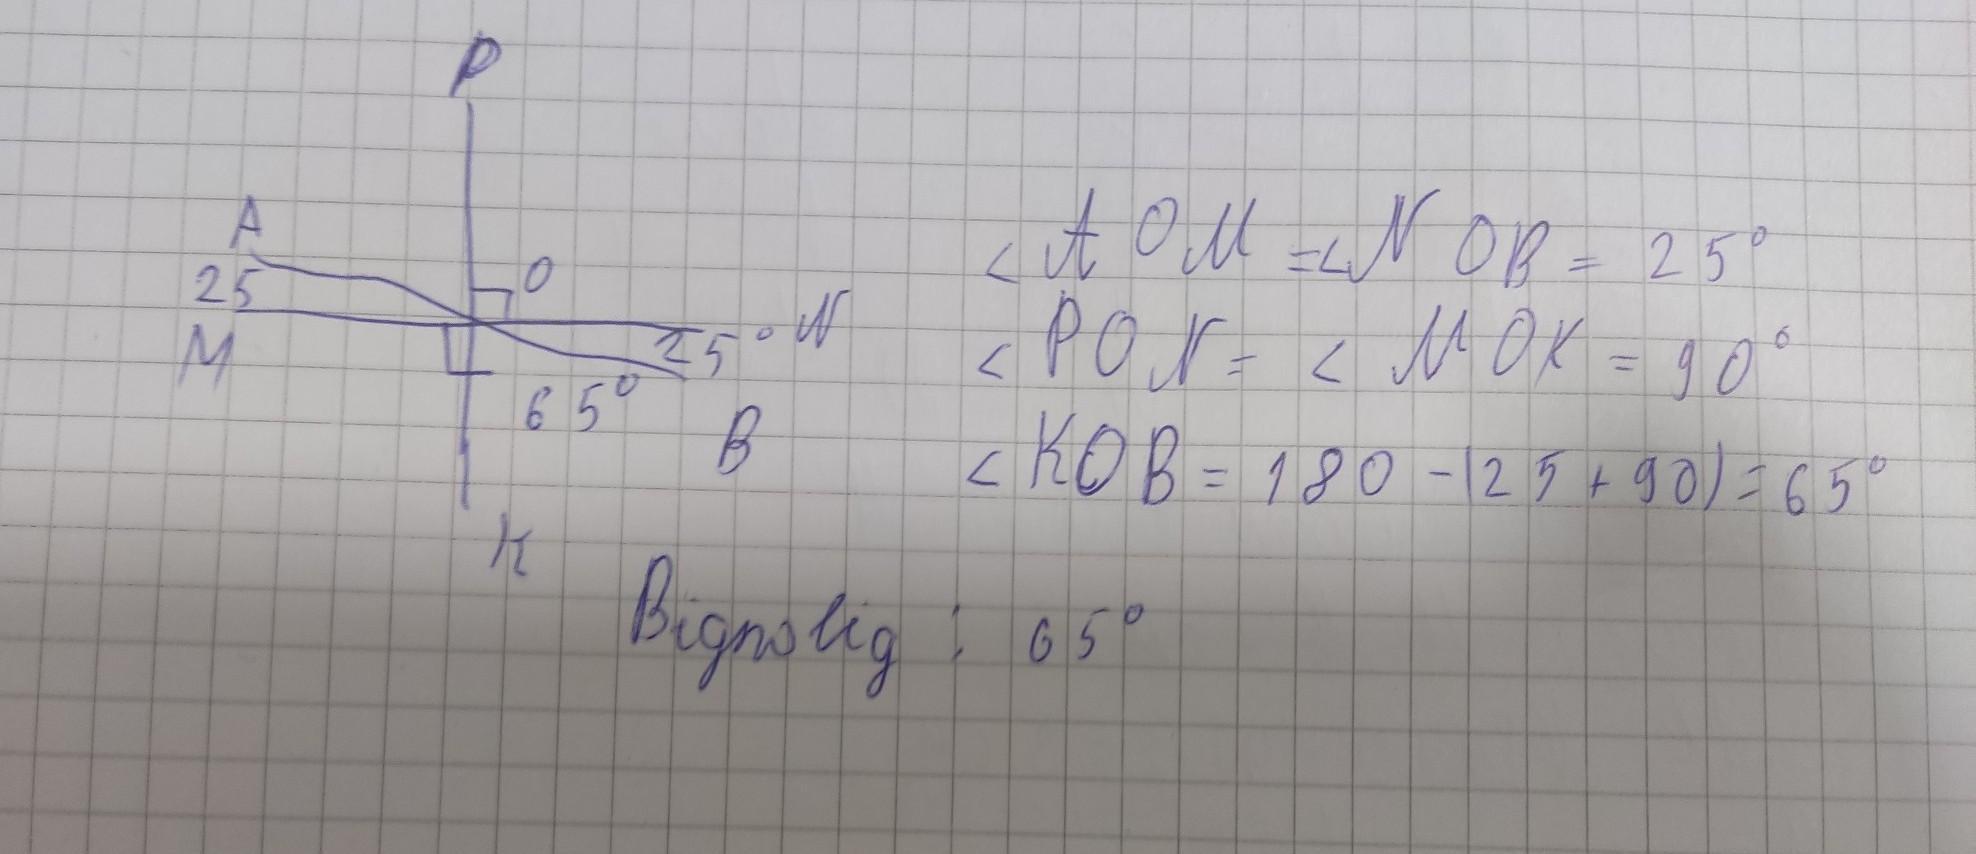 P
A
O
25
25° N
M
65°
B
K
<AOM =<NOB = 25°
<PON = <MOK = 90°
<KOB = 180 -(25+90)=65°
Відповідь: 65°